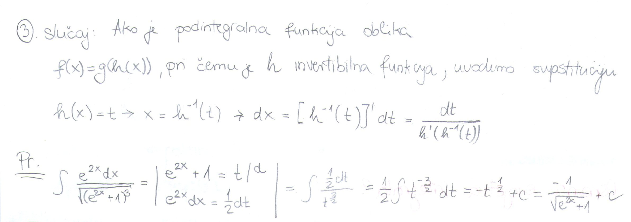 ③. slučaj: Ako je podintegralna funkcija oblika
f(x)=g(h(x)), pri čemu je h invertibilna funkcija, uvodimo supstituciju
h(x)=t → x = h⁻¹(t) → dx = [h⁻¹(t)]' dt = dt / h'(h⁻¹(t))
Pr. ∫ e^{2x}dx / √(e^{2x}+1)³ = | e^{2x}+1 = t /d ; e^{2x}dx = ½dt | = ∫ ½dt / t^{3/2} = ½∫t^{-3/2} dt = -t^{-1/2} + c = -1/√(e^{2x}+1) + c